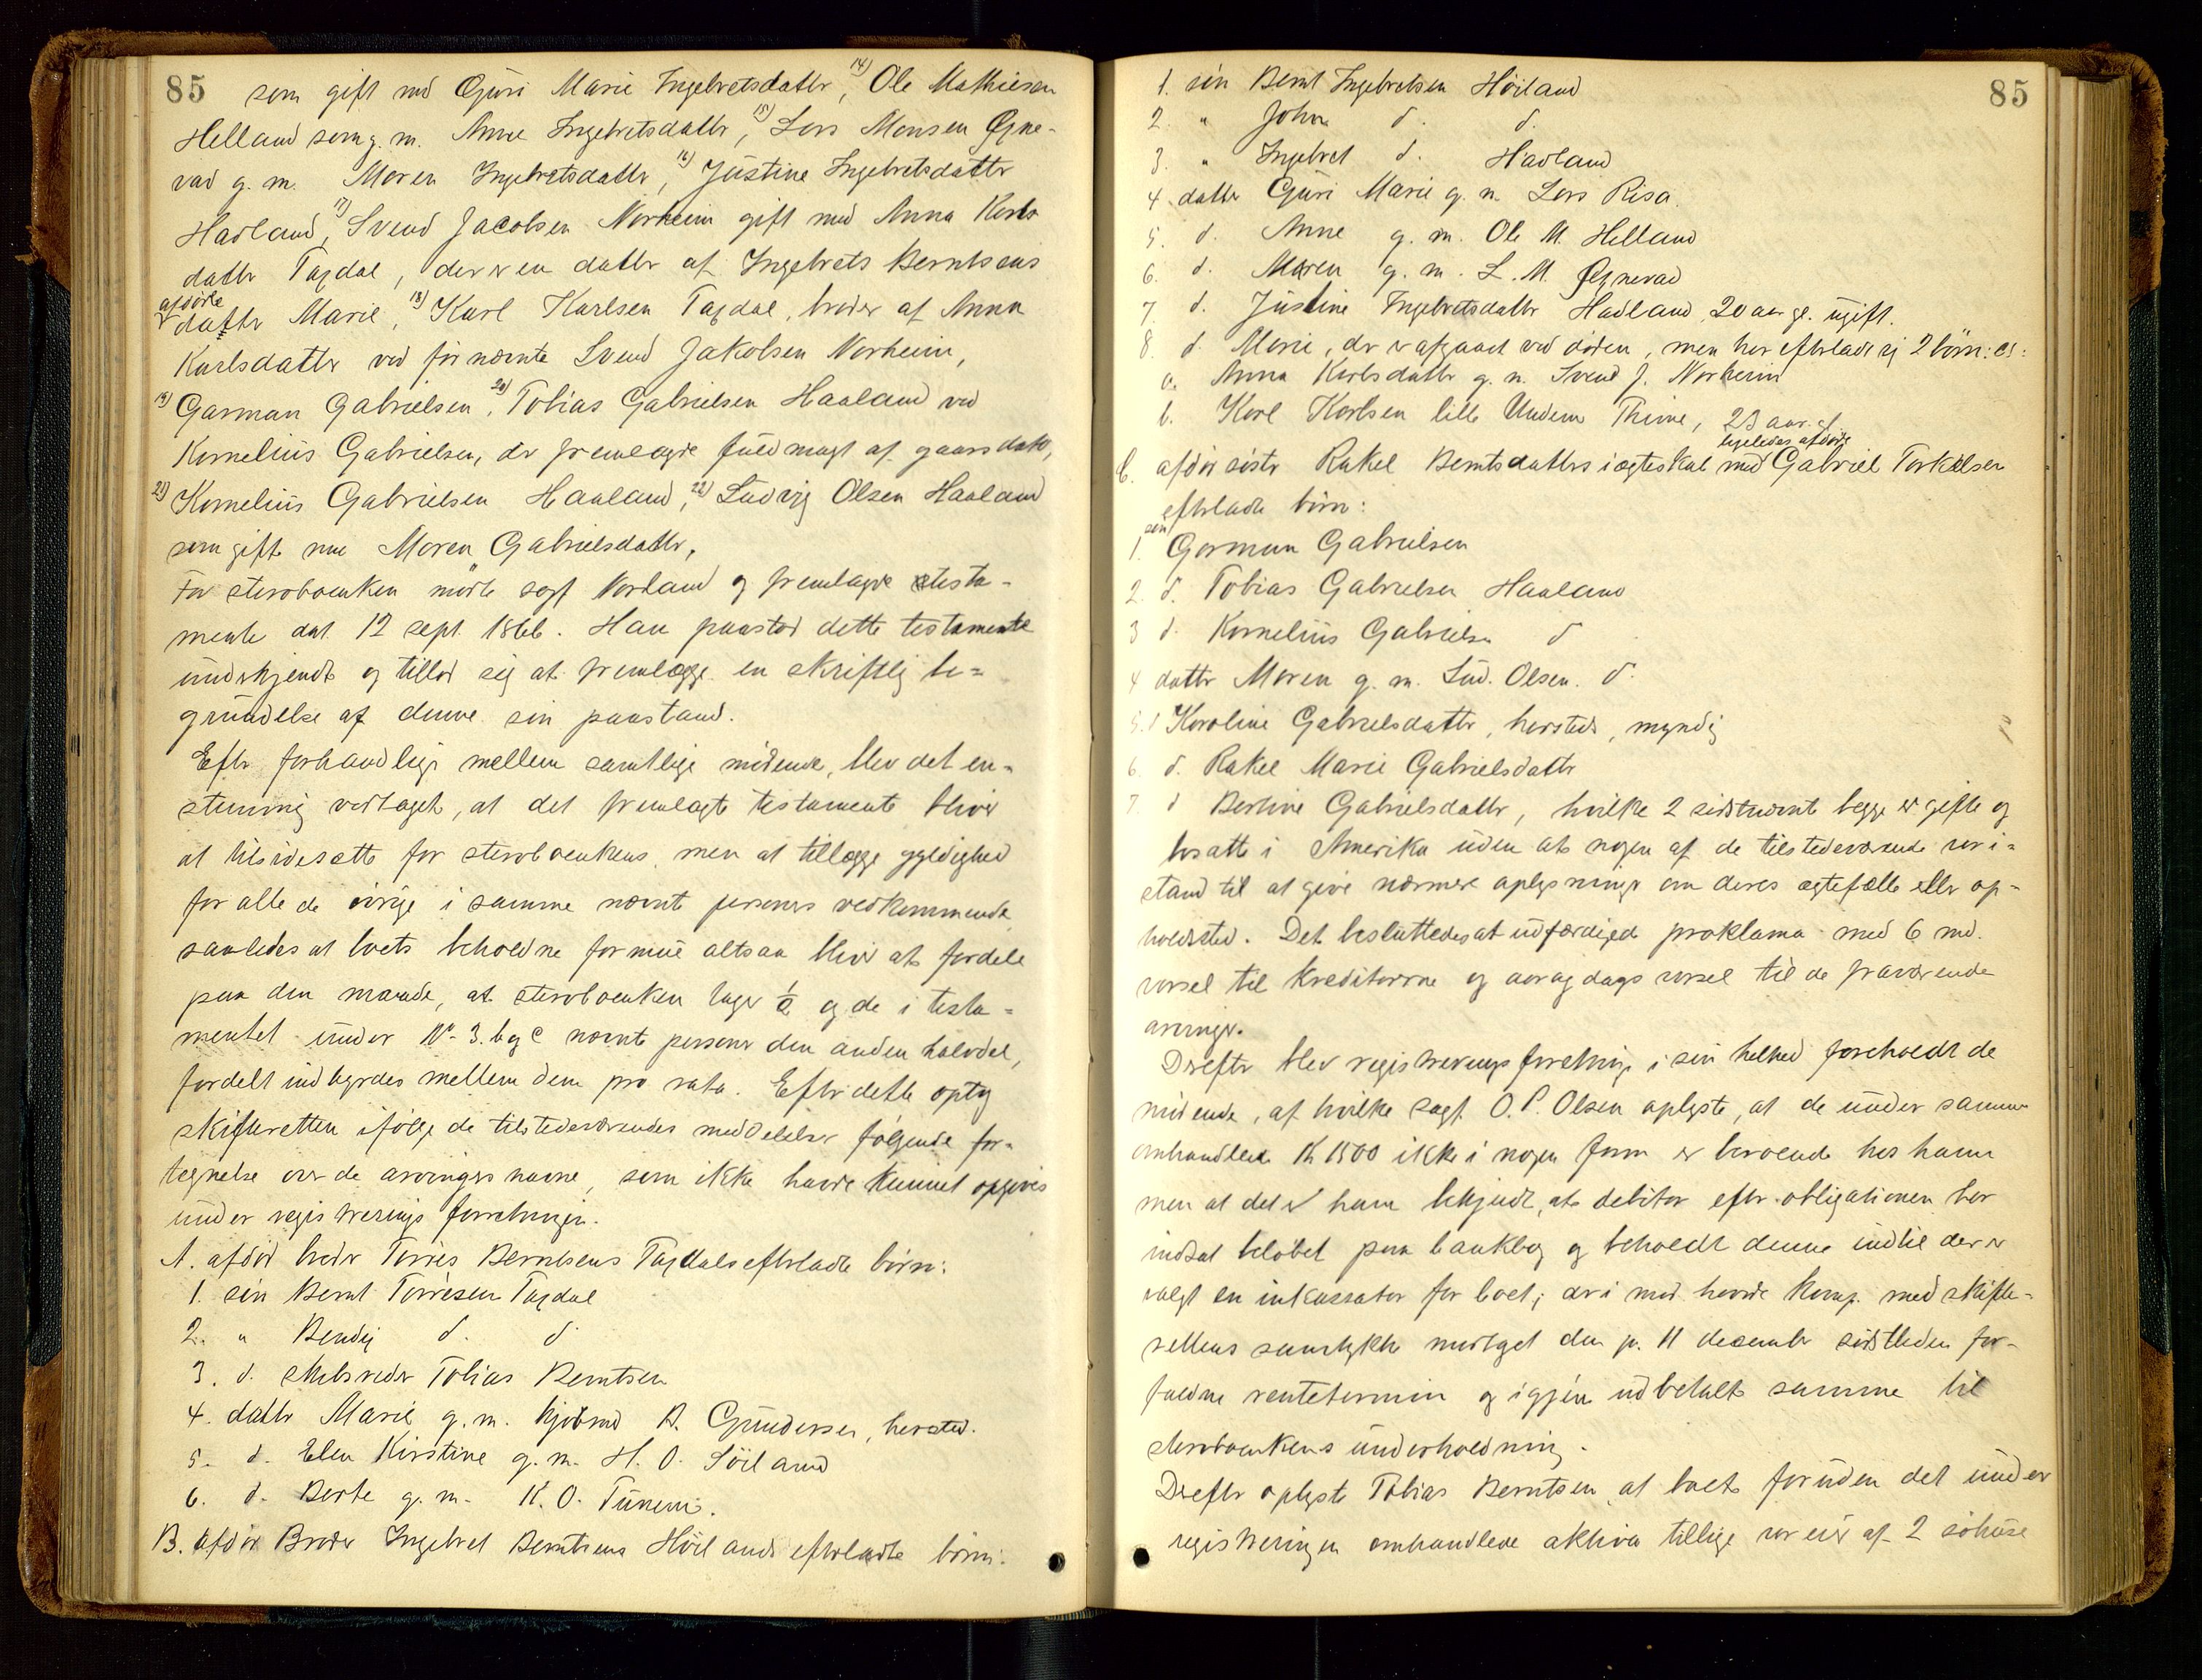 85 som gift med Guri Marie Ingebretsdatter, 14) Ole Mathiesen
Helland som g. m. Anne Ingebretsdatter, 15) Lars Monsen Øgne-
vad g. m. Maren Ingebretsdatter, 16) Justine Ingebretsdatter
Hadland, 17) Svend Jacobsen Norheim gift med Anna Karls
datter Tagdal, der er en datter af Ingebrets Berntsens
afdøde
datter Marie, 18) Karl Karlsen Tagdal, broder af Anna
Karlsdatter ved førnævnte Svend Jakobsen Norheim,
19) Garman Gabrielsen, 20) Tobias Gabrielsen Haaland ved
Kornelius Gabrielsen, der fremlagde fuldmagt af gaars dato,
21) Kornelius Gabrielsen Haaland, 22) Ludvig Olsen Haaland
som gift med Maren Gabrielsdatter,
For stervboenken mødte sagf Norland og fremlagde testa-
mente dat 12 sept. 1866. Han paastod dette testamente
underkjendt og tillod sig at fremlægge en skriftlig be-
grundelse af denne sin paastand.
Efter forhandling mellem samtlige mødende, blev det en-
stemmig vedtaget, at det fremlagte testamente bliver
at tilsidesætte for stervboenkens, men at tillægge gyldighed
for alle de øvrige i samme nævnte personers vedkommende
saaledes at boets beholdne formue altsaa bliver at fordele
paa den maade, at stervboenken tager ½ og de i testa-
mentet under No 3. b og c nævnte personer den anden halvdel,
fordelt indbyrdes mellem dem pro rata. Efter dette optog
skifteretten ifølge de tilstedeværendes meddelelser følgende for-
tegnelse over de arvingers navne, som ikke havde kunnet opgives
under registreringsforretningen.
A. afdød broder Tørres Berntsens Tagdals efterladte børn:
1. søn Bernt Tørresen Tagdal
2. " Bendig d. d.
3. d. skibsreder Tobias Berntsen
4. datter Marie g. m. kjøbmd B. Gundersen, hersted.
5. d. Elen Kirstine g. m. H. O. Söiland
6. d. Berte g. m. K. O. Tunem.
B. afdød Broder Ingebret Berntsens Höilands efterladte børn:
85
1. søn Bernt Ingebretsen Höiland
2. " John d. d.
3. " Ingebret d. Hadland
4 datter Guri Marie g. m. Lars Risa.
5. d. Anne g. m. Ole M. Helland
6. d. Maren g. m. L. M. Øgnevad
7. d. Justine Ingebretsdatter Hadland, 20 aar gl. ugift.
8. d. Marie, der er afgaaet ved døden, men har efterladt sig 2 børn:
a. Anna Karlsdatter g. m. Svend J. Norheim
b. Karl Karlsen lille Undem Thime, 23 aar gl.
ligeledes afdøde
C. afdød søster Rakel Berntsdatters i ægteskab med Gabriel Torkelsen
efterladte børn:
søn
1. Garman Gabrielsen
2. d. Tobias Gabrielsen Haaland
3 d. Kornelius Gabrielsen d
4 datter Maren g. m. Lud. Olsen. d.
5. d Karoline Gabrielsdatter, hersteds, myndig
6 d. Rakel Marie Gabrielsdatter
7. d Bertine Gabrielsdatter, hvilke 2 sidstnævnte begge er gifte og
bosatte i Amerika uden at nogen af de tilstedeværende var i-
stand til at give nærmere oplysninger om deres ægtefælle eller op-
holdssted. Det besluttedes at udfærdige proklama med 6 md.
varsel til kreditorerne og aar og dags varsel til de fraværende
arvinger.
Derefter blev registreringsforretning i sin helhed foreholdt de
mødende, af hvilke sagf. O. P. Olsen oplyste, at de under samme
omhandlede Kr 1500 ikke i nogen form er beroende hos ham
men at det er ham bekjendt, at debitor efter obligationen har
indsat beløbet paa bankbog og beholdt denne indtil der er
valgt en inkassator for boet; derimod havde komp. med skifte-
rettens samtykke modtaget den pr. 11 december sidstleden for-
faldne rentetermin og igjen udbetalt samme til
stervboenkens underholdning.
Derefter oplyste Tobias Berntsen at boet foruden det under
registreringen omhandlede aktiva tillige var eier af 2 søhuse